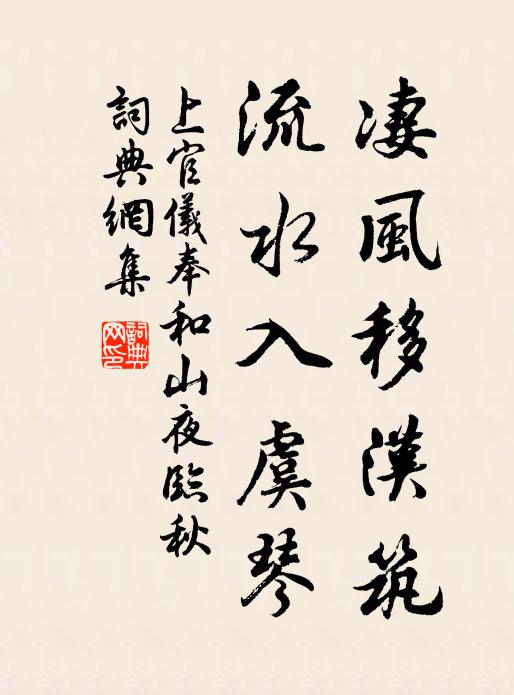 凄風移漢筑
流水入虞琴
上官儀奉和山夜臨秋
詞典網集
詞典网印